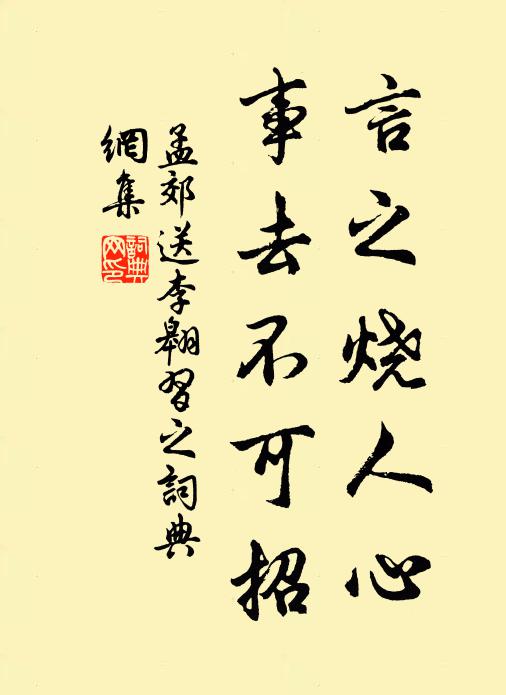 言之烧人心
事去不可招
孟郊送李翱習之詞典
網集
詞典
网印